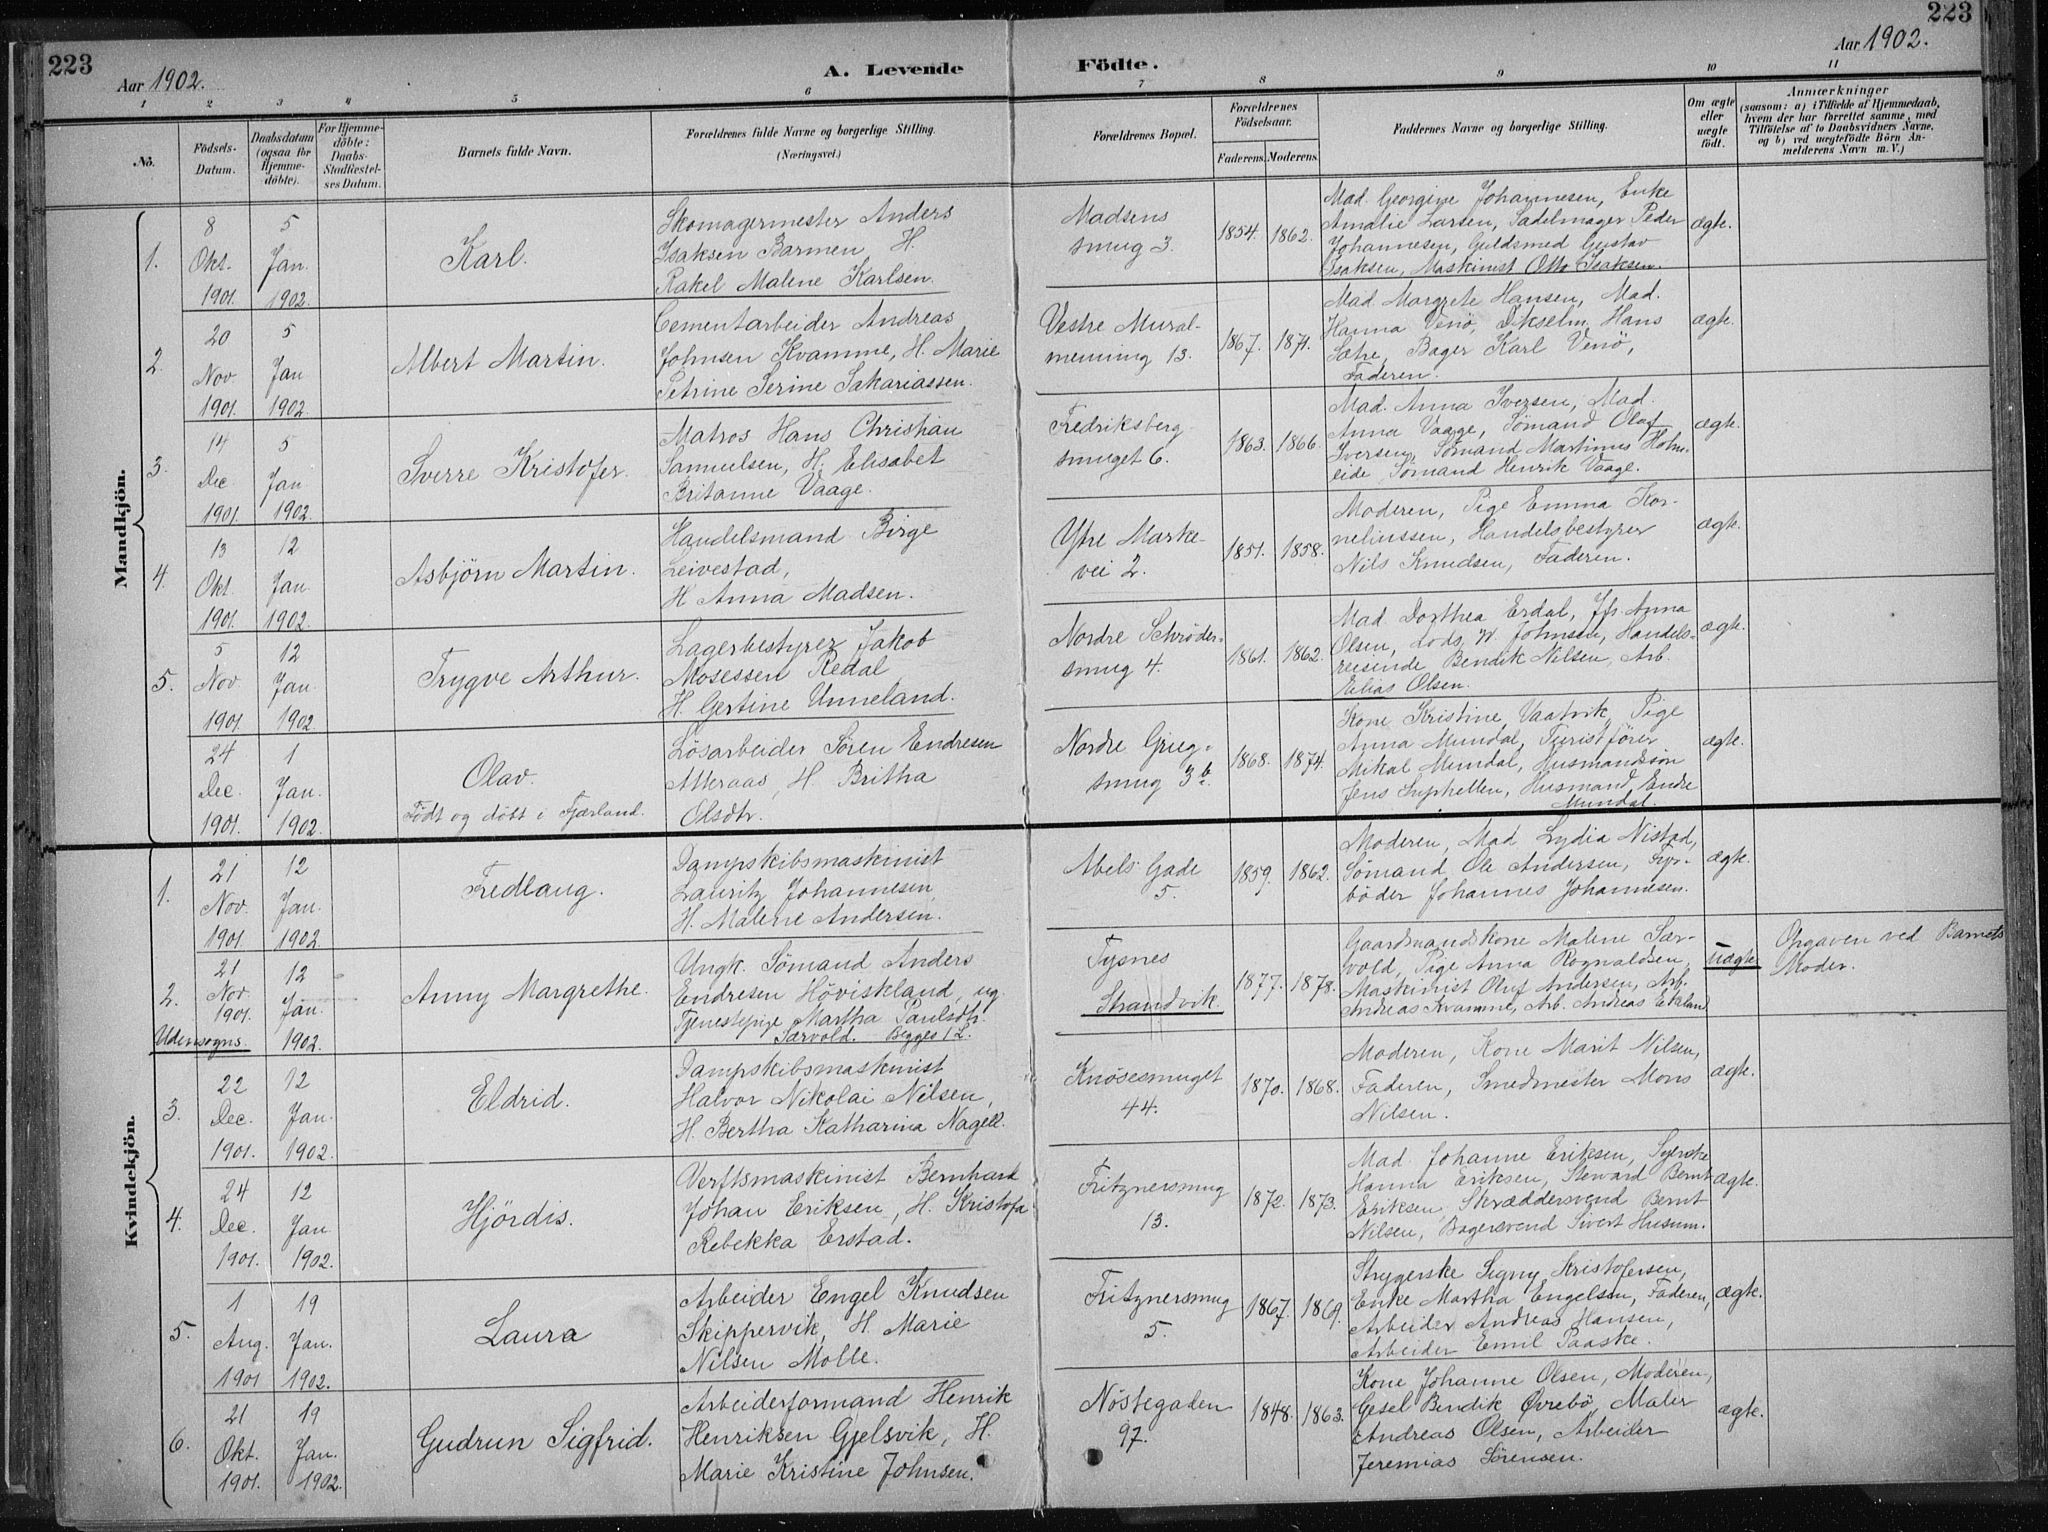 223
Aar 1902.
A. Levende
Födte.
Aar 1902.
223
1 2 3 4 5 6 7 8 9 10 11
No.
Födsels-Datum.
Daabsdatum (ogsaa for Hjemme-döbte).
For Hjemme-döbte: Daabs-Stadfæstel-ses Datum.
Barnets fulde Navn.
Forældrenes fulde Navne og borgerlige Stilling.
(Næringsvei.)
Forældrenes Bopæl.
Forældrenes Födselsaar.
Faderens. Moderens.
Faddernes Navne og borgerlige Stilling.
Om ægte eller uægte födt.
Anmærkninger
(saasom: a) i Tilfælde af Hjemmedaab,
hvem der har forrettet samme, med
Tilföielse af to Daabsvidners Navne,
og b) ved uægtefödte Börn An-
melderens Navn m. V.)
Mandkjön.
1.
8 Okt. 1901.
5 Jan. 1902.
Karl.
Skomagermester Anders
Isaksen Barmen, H.
Rakel Malene Karlsen.
Madsens
smug 3.
1854. 1862.
Mad. Georgine Johannesen, Enke
Amalie Larsen, Sadelmager Peder
Johannesen, Guldsmed Gustav
Isaksen, Maskinist Otto Isaksen.
ægte.
2.
20 Nov 1901.
5 Jan 1902.
Albert Martin.
Cementarbeider Andreas
Johnsen Kvamme, H. Marie
Petrine Serine Sakariassen.
Vestre Mural-
menning 13.
1867. 1871.
Mad. Margrete Hansen, Mad.
Hanna Venö, Hans
Sætre, Bager Karl Venö,
Faderen.
ægte.
3.
14 Dec 1901.
5 Jan 1902.
Sverre Kristofer.
Matros Hans Christian
Samuelsen, H. Elisabet
Britanne Vaage.
Fredriksberg-
smuget 6.
1863. 1866.
Mad. Anna Iversen, Mad.
Anna Vaage, Sömand Olaf
Iversen, Sömand Martinus Holm-
eide, Sömand Henrik Vaage.
ægte.
4.
13 Okt. 1901.
12 Jan. 1902.
Asbjörn Martin.
Handelsmand Birge
Leivestad,
H. Anna Madsen.
Ytre Marke-
vei 2.
1851. 1858.
Moderen, Pige Emma Kor-
neliussen, Handelsbestyrer
Nils Knudsen, Faderen.
ægte.
5.
5 Nov. 1901.
12 Jan. 1902
Trygve Arthur.
Lagerbestyrer Jakob
Mosessen Redal
H. Gertine Unneland.
Nordre Schröder-
smug 4.
1861. 1862.
Mad. Dorthea Erdal, Jfr. Anna
Olsen, Lods W. Johnsen, Handels-
reisende Bendik Nilsen, Arb.
Elias Olsen.
ægte.
24 Dec. 1901.
1 Jan. 1902.
Olav.
Födt og döbt i Fjærland.
Lösarbeider Sören Endresen
H. Britha
Olsdtr.
Nordre Grieg-
smug 3b.
1868. 1874.
Kone Kristine Vaatvik, Pige
Anna Mundal, Turistförer
Mikal Mundal, Husmandssön
Jens Suphellen, Husmand Endre
Mundal.
ægte.
Kvindekjön.
1.
21 Nov. 1901.
12 Jan. 1902.
Fredlaug.
Dampskibsmaskinist
Lauritz Johannesen
H. Malene Andersen.
Abels Gade
5.
1859. 1862.
Moderen, Mad Lydia Nistad,
Sömand Ole Andersen, Fyr-
böder Johannes Johannesen.
ægte.
2.
Udensogns.
21 Nov 1901.
12 Jan. 1902.
Anny Margrethe.
Ungk. Sömand Anders
Endresen Höviskland, og
Tjenestepige Martha Paulsdtr.
Særvold. Begges 1 L.
Tysnes
Strandvik.
1877. 1878.
Gaardmandskone Malene Sær-
vold, Pige Anna Rognaldsen,
Maskinist Oluf Andersen, Arb.
Andreas Kvamme, Arb. Andreas Eikland
uægte
Opgaven ved Barnets
Moder.
3.
22 Dec. 1901.
12 Jan. 1902.
Eldrid.
Dampskibsmaskinist
Halvor Nikolai Nilsen,
H. Bertha Katharina Nagell.
Knösesmuget
44.
1870. 1868.
Moderen, Kone Marit Nilsen,
Faderen, Smedmester Mons
Nilsen.
ægte.
4.
24 Dec. 1901.
12 Jan 1902.
Hjördis.
Verftsmaskinist Bernhard
Johan Eriksen, H. Kristofa
Rebekka Erstad.
Fritznersmug
13.
1872. 1873.
Mad. Johanne Eriksen, Syerske
Hanna Eriksen, Steward Bernt
Eriksen, Skræddersvend Bernt
Nilsen, Bagersvend Sivert Husum.
ægte.
5.
1 Aug. 1901
19 Jan. 1902.
Laura
Arbeider Engel Knudsen
Skippervik, H. Marie
Nilsen Molle.
Fritznersmug
5.
1867. 1869.
Strygerske Signy Kristofersen,
Enke Martha Engelsen, Faderen,
Arbeider Andreas Hansen,
Arbeider Emil Paaske.
ægte.
6.
21 Okt. 1901.
19 Jan. 1902.
Gudrun Sigfrid.
Arbeiderformand Henrik
Henriksen Gjelsvik, H.
Marie Kristine Johnsen.
Nöstegaden
97.
1848. 1863.
Kone Johanne Olsen, Moderen,
Gesel Bendik Øvrebö, Maler
Andreas Olsen, Arbeider
Jeremias Sörensen.
ægte.